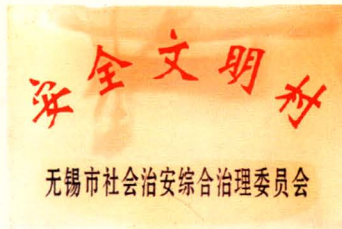 安全文明村
无锡市社会治安综合治理委员会